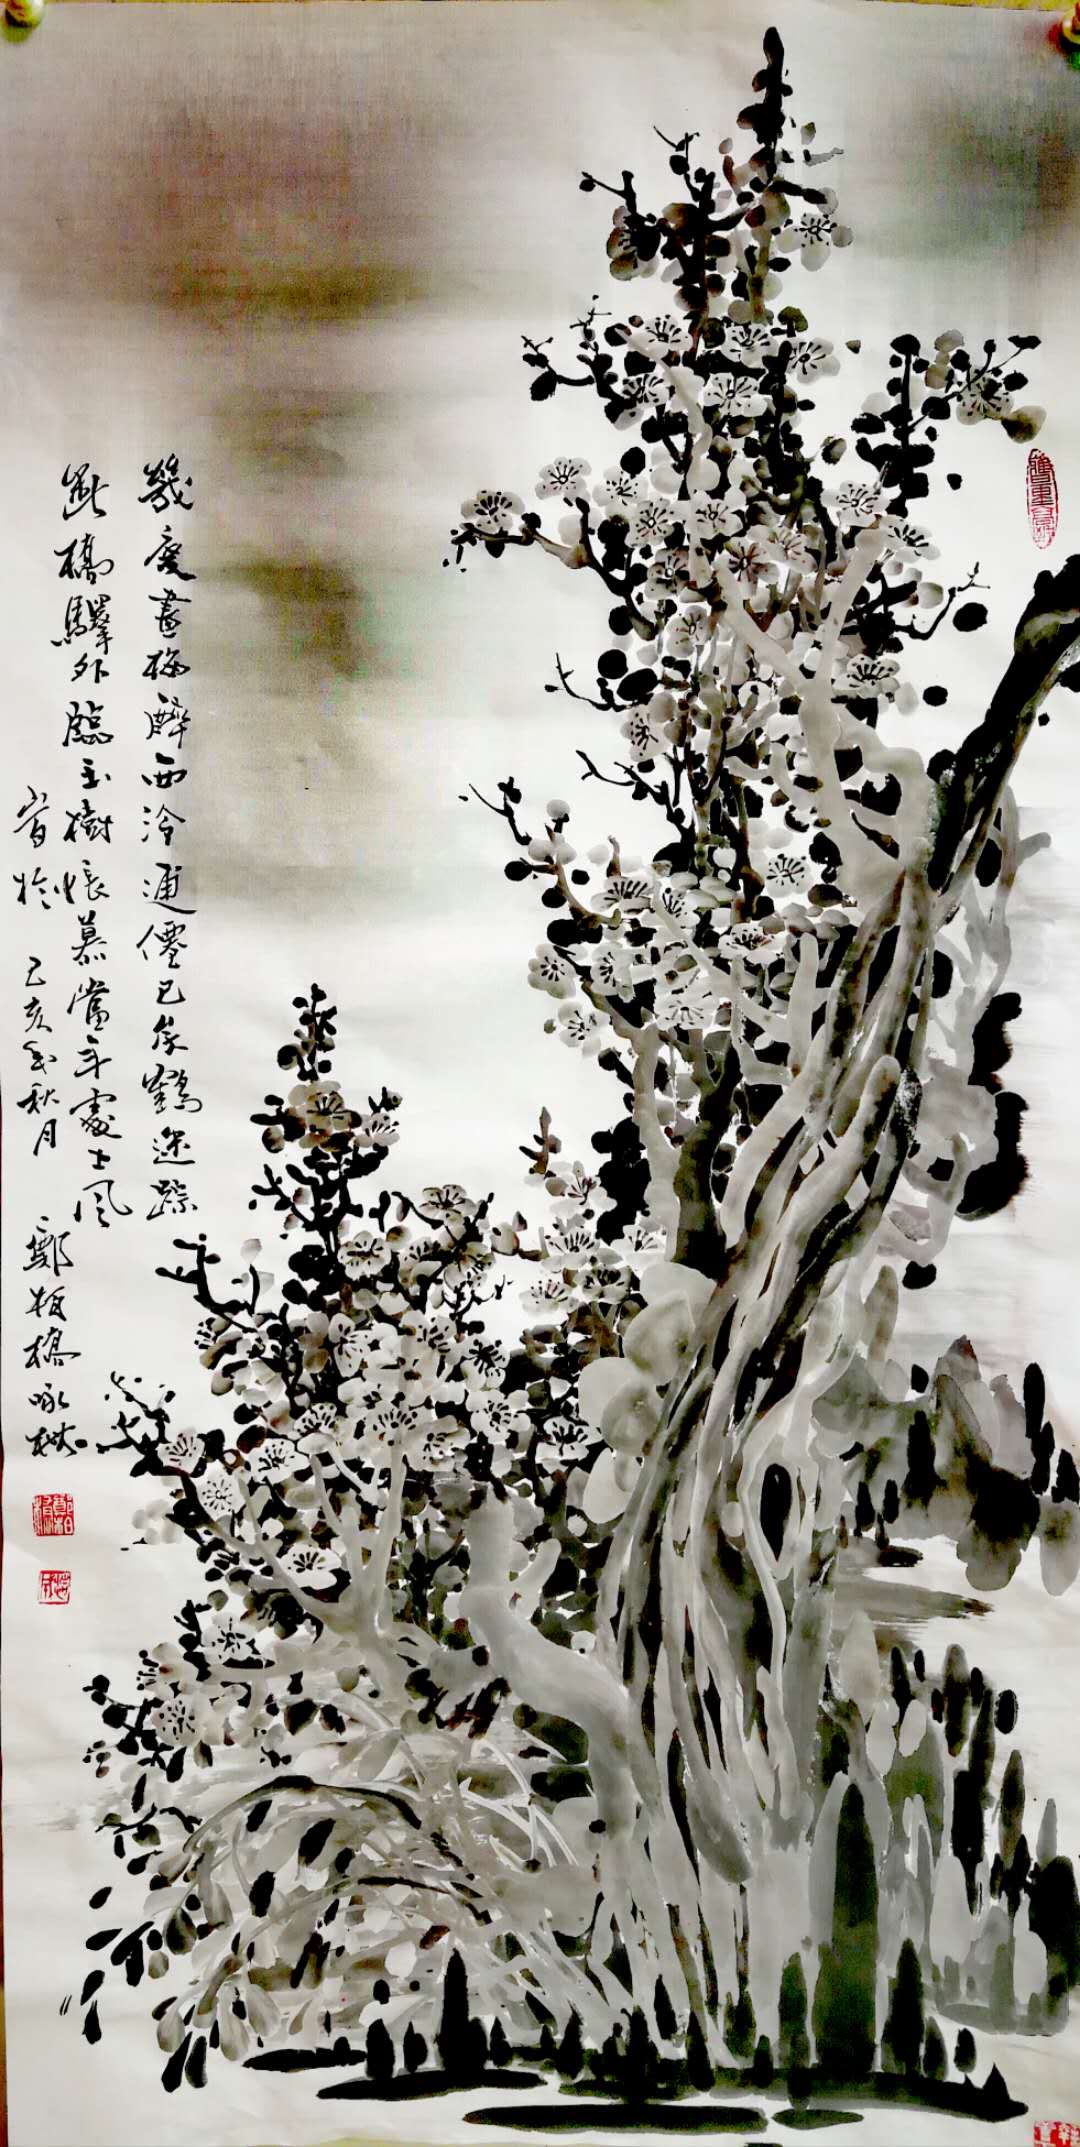 幾度畫梅醉西泠逋僊已矣鶴迷踪
斷橋驛外臨玉樹懷慕當年處士風
於己亥年秋月鄭板橋咏